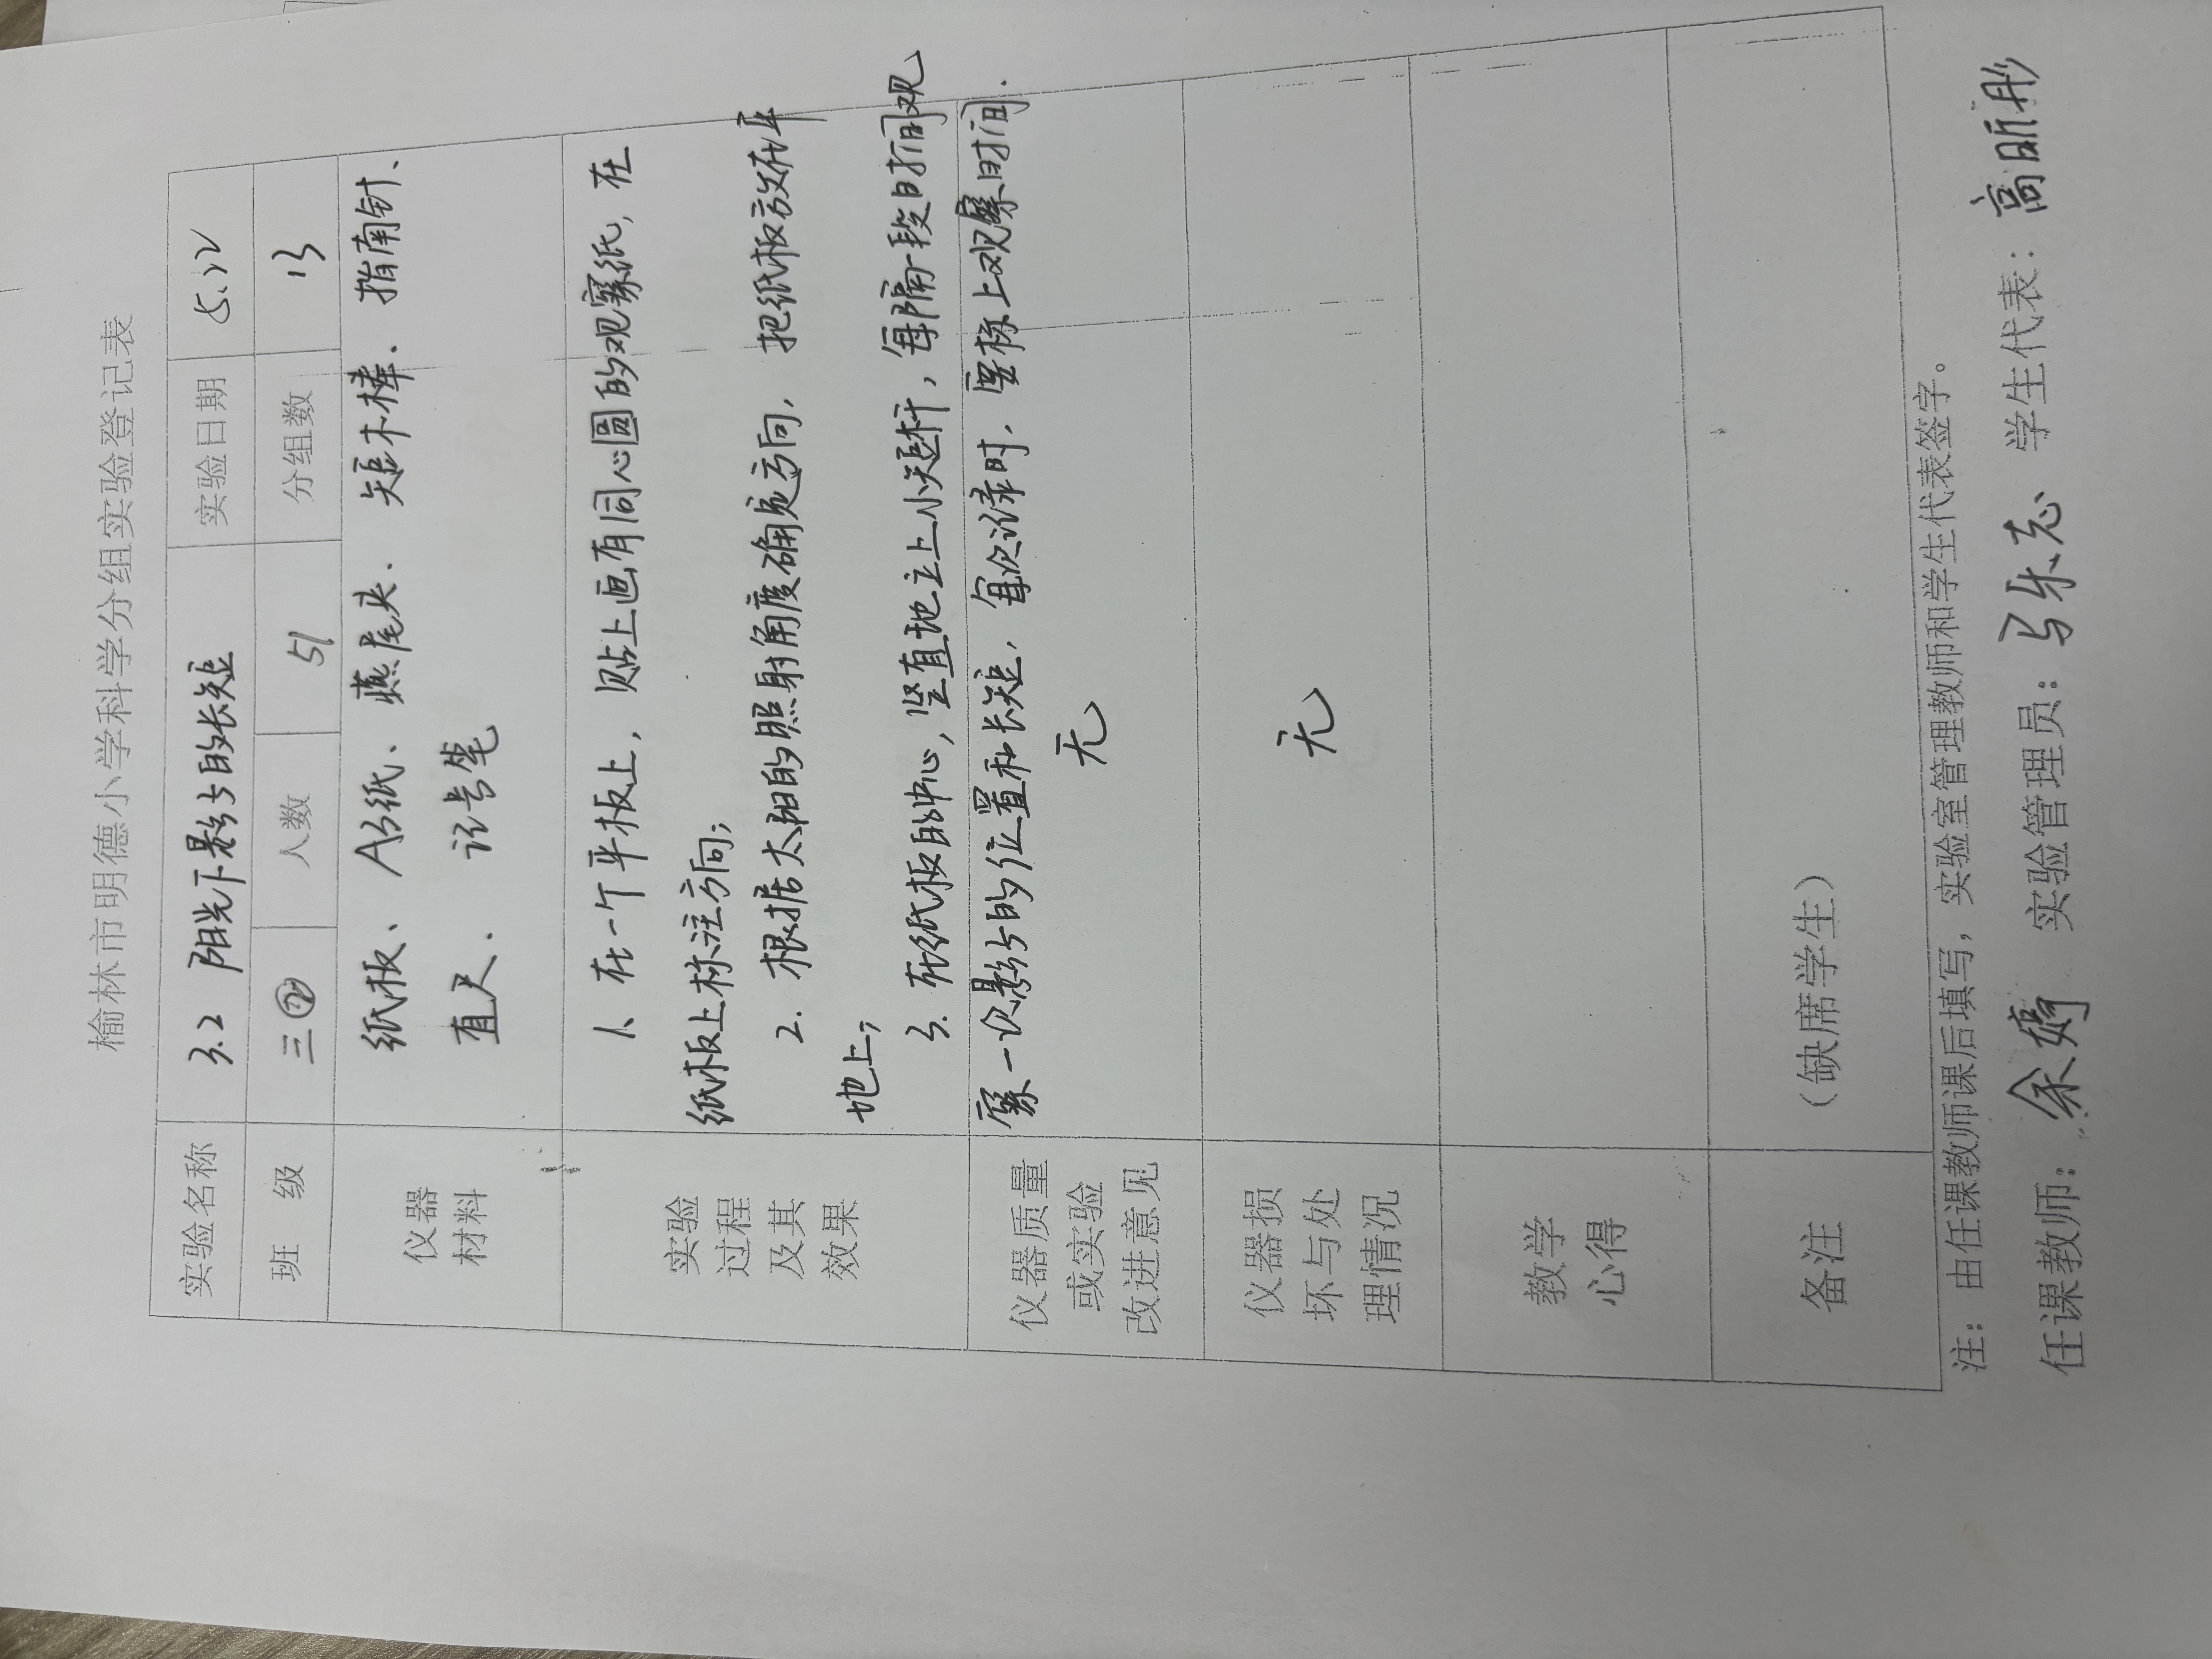 榆林市明德小学科学分组实验登记表
实验名称 3.2 阳光下影子的长短 实验日期 5.22
班 级 三② 人数 51 分组数 13
仪器材料 纸板、A3纸、燕尾夹、短木棒、指南针、
直尺、记号笔
实验过程及其效果 1、在一个平板上，贴上画有同心圆的观察纸，在
纸板上标注方向；
2. 根据太阳的照射角度确定方向，把纸板放在平
地上；
3. 在纸板的中心，竖直地立上小短杆，每隔一段时间观
察一次影子的位置和长短，每次读时，要标上观察时间.
仪器质量或实验改进意见 无
仪器损坏与处理情况 无
教学心得
备注 （缺席学生）
注：由任课教师课后填写，实验室管理教师和学生代表签字。
任课教师： 实验管理员：马乐志 学生代表：高昕彤